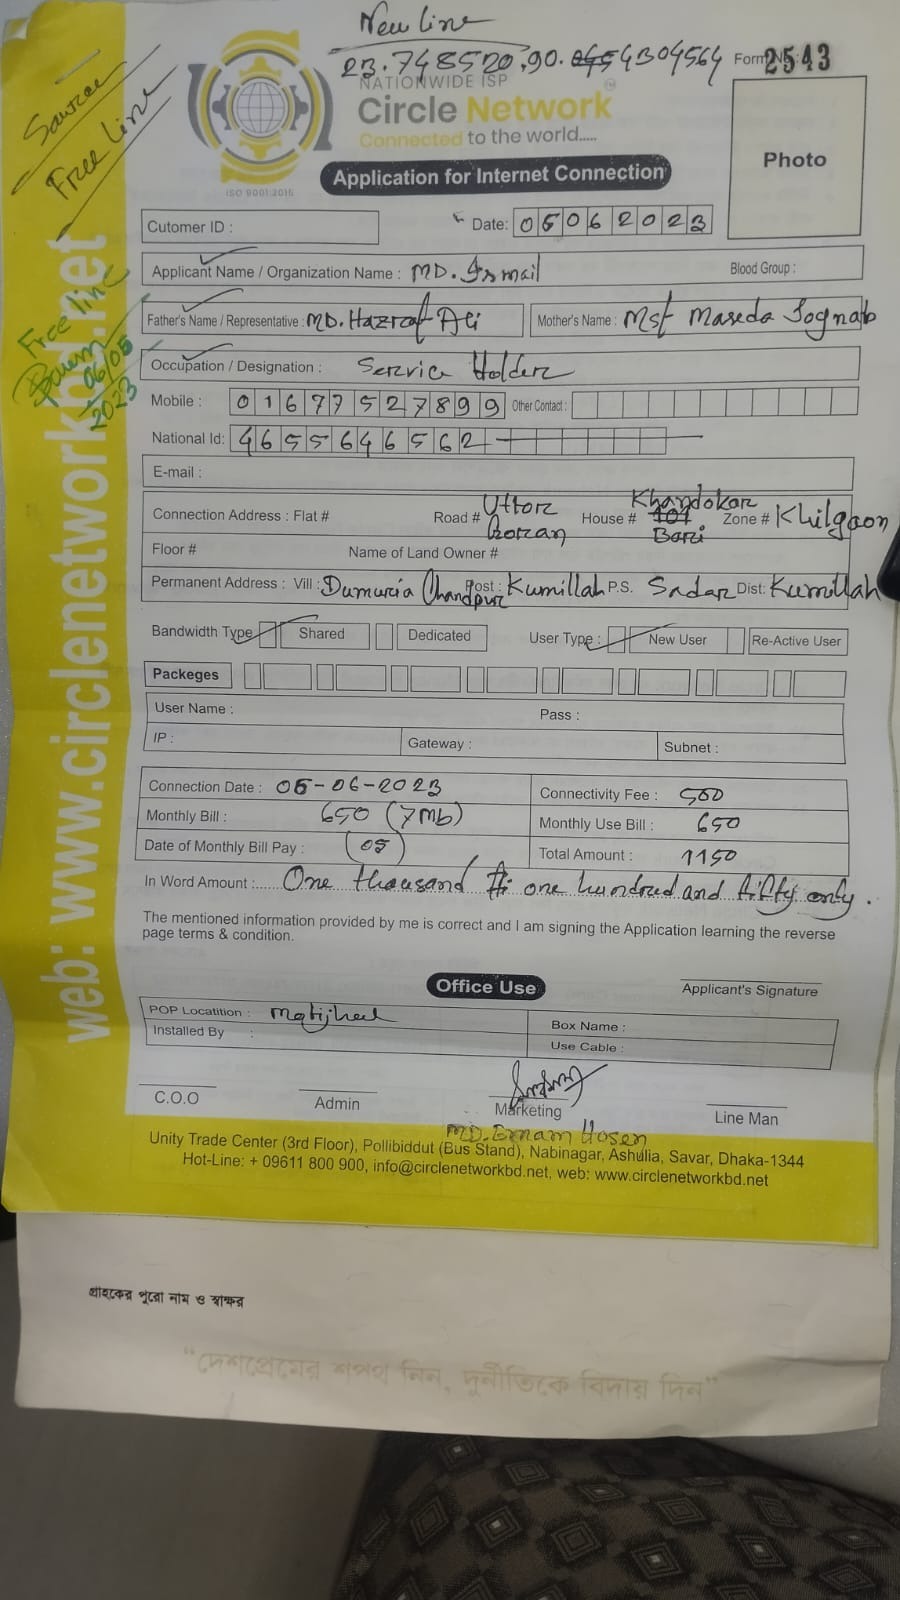 New line
23.748520,90. 4304564
Form No: 2543
Source
Free line
NATIONWIDE ISP
Circle Network
Connected to the world.....
ISO 9001:2015
Application for Internet Connection
Photo
Cutomer ID :
Date: 05062023
Applicant Name / Organization Name : MD. Ismail
Blood Group :
Free line
06/05
2023
Father's Name / Representative : MD. Hazrat Ali
Mother's Name : Mst Maseda
Occupation / Designation : Service Holder
Mobile : 01677527899 Other Contact :
National Id: 4655646562
E-mail :
Connection Address : Flat # Road # Uttor Goran House # Khandokar Bari Zone # Khilgaon
Floor # Name of Land Owner #
Permanent Address : Vill : Dumuria Chandpur Post : Kumillah P.S. Sadar Dist: Kumillah
Bandwidth Type Shared Dedicated User Type : New User Re-Active User
Packeges
User Name : Pass :
IP : Gateway : Subnet :
Connection Date : 05-06-2023 Connectivity Fee : 500
Monthly Bill : 650 (7Mb) Monthly Use Bill : 650
Date of Monthly Bill Pay : (05) Total Amount : 1150
In Word Amount :...... One thousand one hundred and fifty only.
The mentioned information provided by me is correct and I am signing the Application learning the reverse
page terms & condition.
Applicant's Signature
Office Use
POP Locatition : Motijheel Box Name :
Installed By : Use Cable :
C.O.O Admin Marketing Line Man
MD. Emam Hosen
Unity Trade Center (3rd Floor), Pollibiddut (Bus Stand), Nabinagar, Ashulia, Savar, Dhaka-1344
Hot-Line: + 09611 800 900, info@circlenetworkbd.net, web: www.circlenetworkbd.net
web: www.circlenetworkbd.net
গ্রাহকের পুরো নাম ও স্বাক্ষর
“দেশপ্রেমের শপথ নিন, দুর্নীতিকে বিদায় দিন”